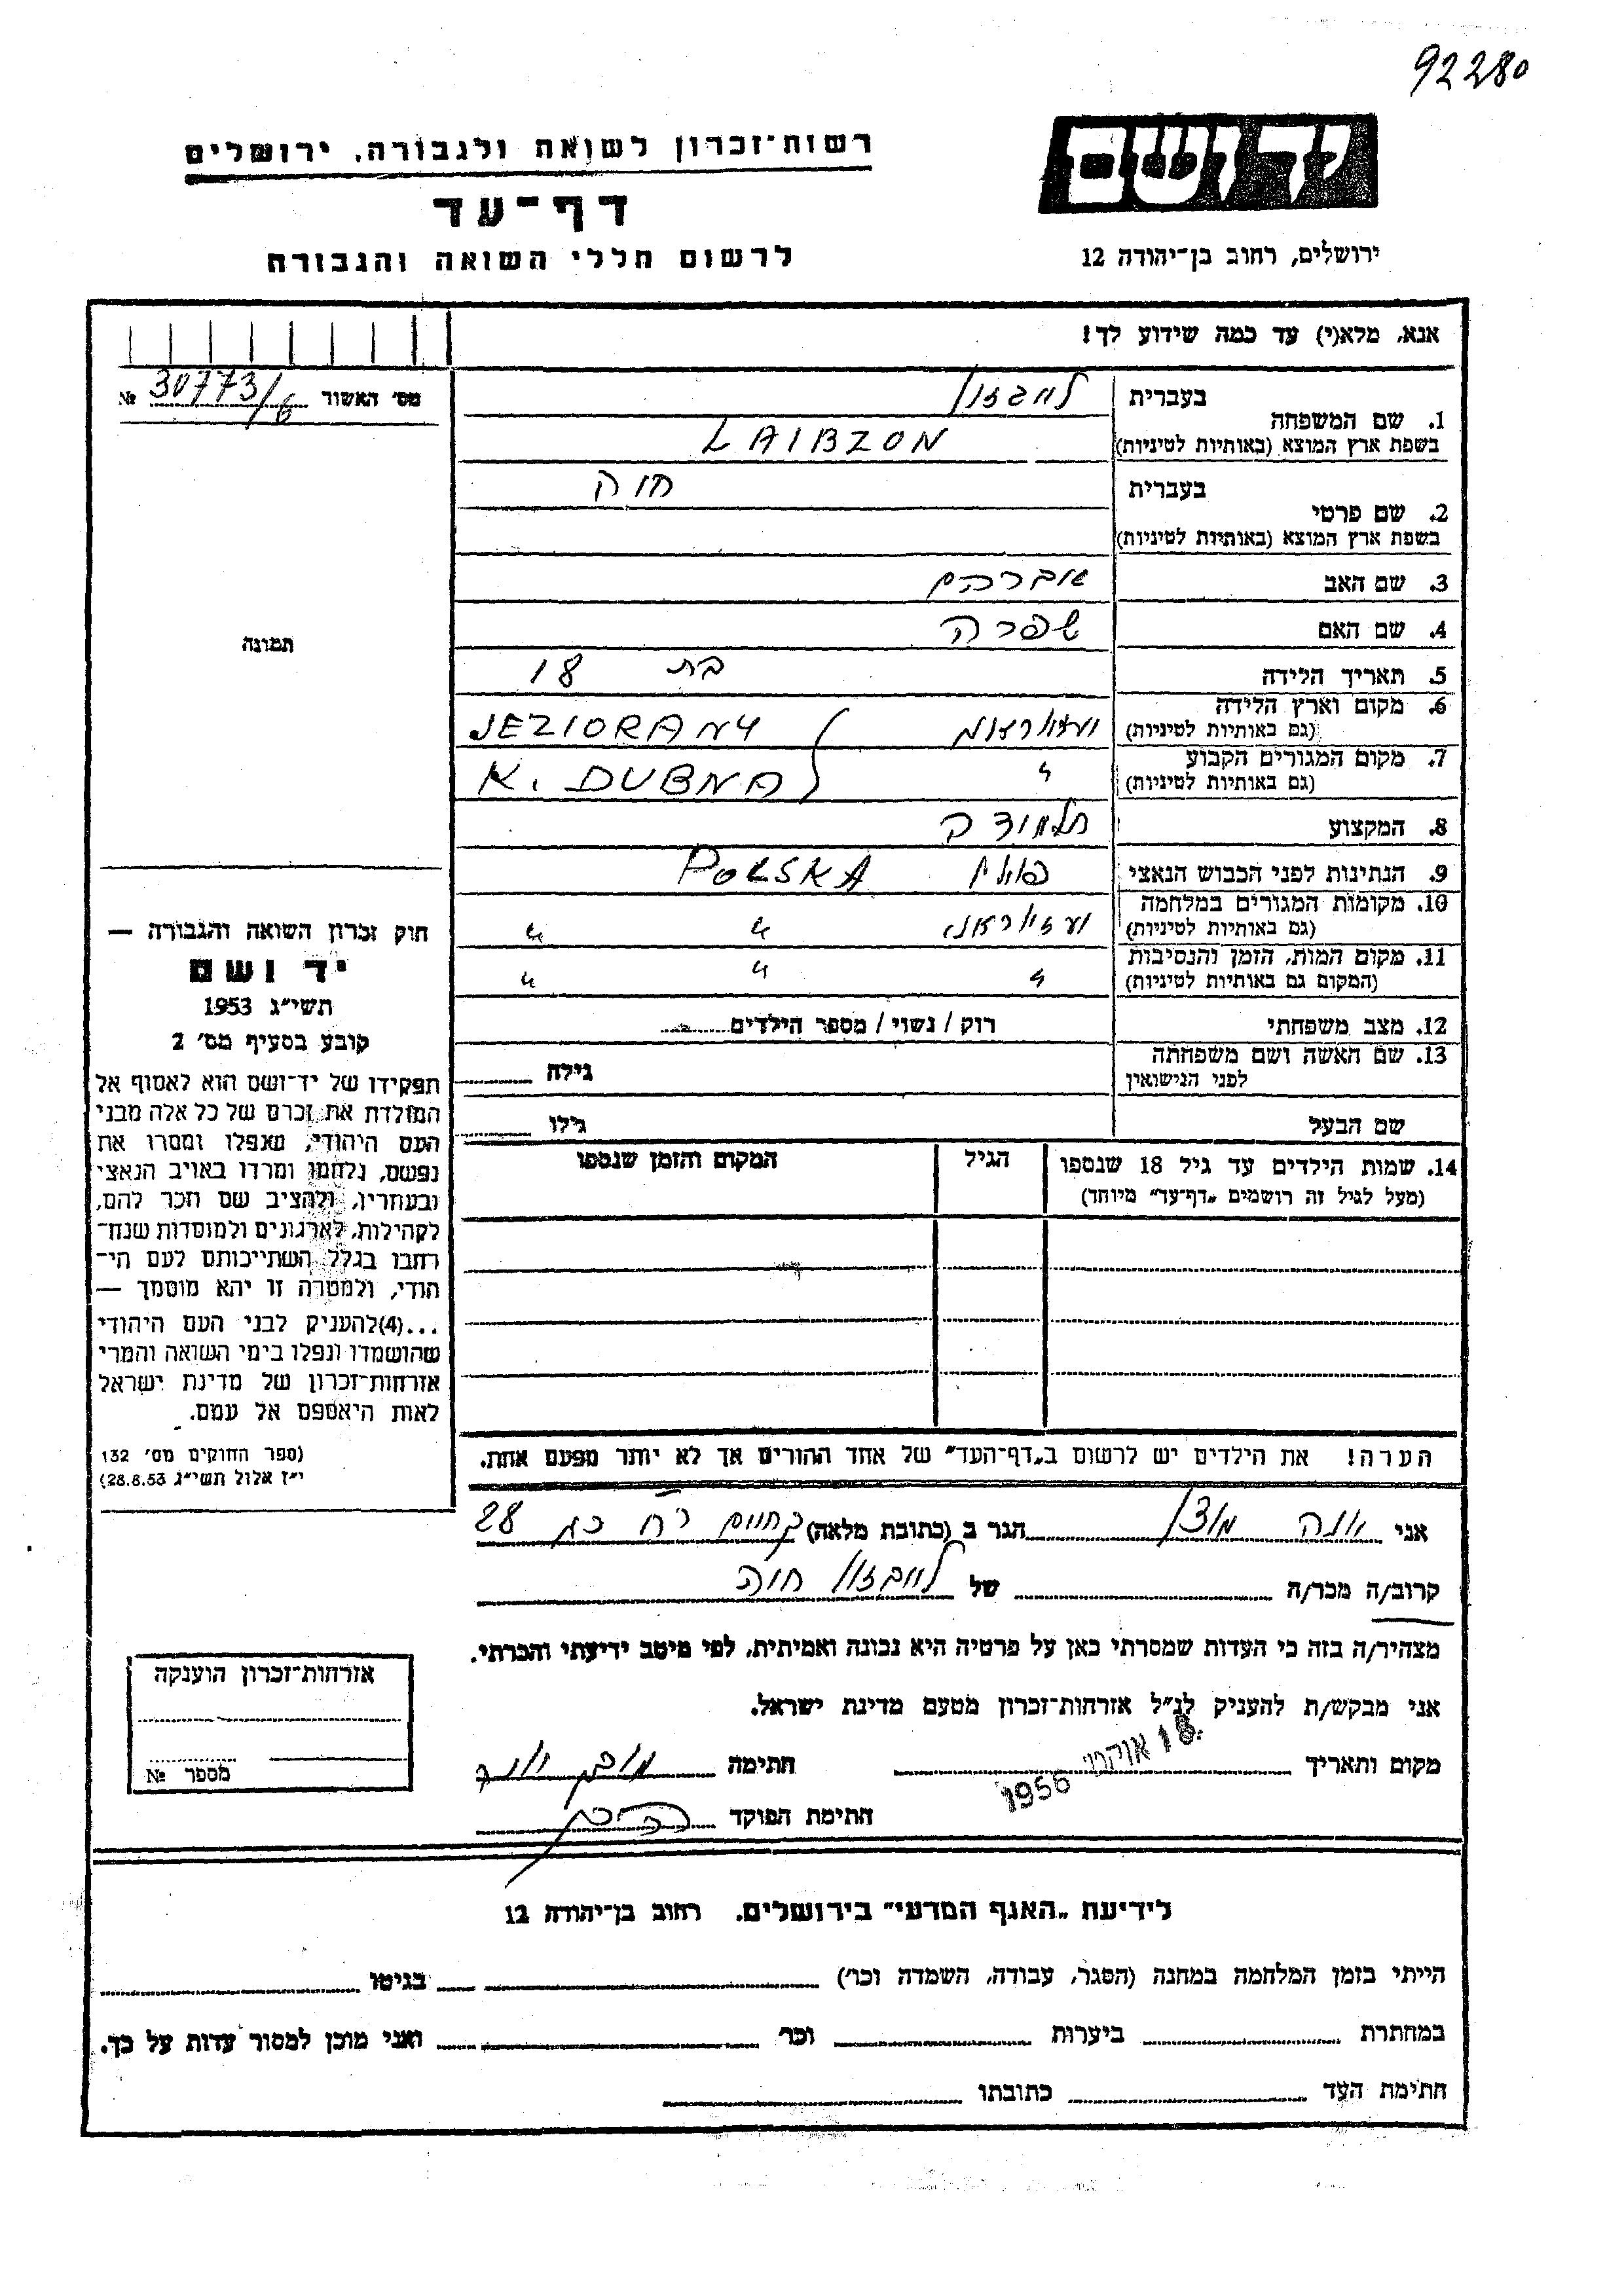 92280
יד ושם
ירושלים, רחוב בן־יהודה 12
רשות־זכרון לשואה ולגבורה, ירושלים
דף־עד
לרשום חללי השואה והגבורה
אנא, מלא(י) עד כמה שידוע לך!
מס' האשור 30773/6 №
תמונה
1. שם המשפחה בעברית לייבזון
בשפת ארץ המוצא (באותיות לטיניות) LAIBZON
2. שם פרטי בעברית חוה
בשפת ארץ המוצא (באותיות לטיניות)
3. שם האב אברהם
4. שם האם שפרה
5. תאריך הלידה בת 18
6. מקום וארץ הלידה JEZIORANY
(גם באותיות לטיניות)
7. מקום המגורים הקבוע " K. DUBNA
(גם באותיות לטיניות)
8. המקצוע תלמידה
9. הנתינות לפני הכבוש הנאצי פולין POLSKA
10. מקומות המגורים במלחמה " "
(גם באותיות לטיניות)
11. מקום המות, הזמן והנסיבות " " "
(המקום גם באותיות לטיניות)
12. מצב משפחתי רוק / נשוי / מספר הילדים
13. שם האשה ושם משפחתה גילה
לפני הנישואין
שם הבעל גילו
14. שמות הילדים עד גיל 18 שנספו הגיל המקום והזמן שנספו
(מעל לגיל זה רושמים "דף־עד" מיוחד)
חוק זכרון השואה והגבורה —
יד ושם
תשי"ג 1953
קובע בסעיף מס' 2
תפקידו של יד־ושם הוא לאסוף אל
המולדת את זכרם של כל אלה מבני
העם היהודי, שנפלו ומסרו את
נפשם, נלחמו ומרדו באויב הנאצי
ובעוזריו, ולהציב שם וזכר להם,
לקהילות, לארגונים ולמוסדות שנח־
רבו בגלל השתייכותם לעם הי־
הודי, ולמטרה זו יהא מוסמך —
...(4)להעניק לבני העם היהודי
שהושמדו ונפלו בימי השואה והמרי
אזרחות־זכרון של מדינת ישראל
לאות היאספם אל עמם.
(ספר החוקים מס' 132
י"ז אלול תשי"ג 28.8.53)
הערה! את הילדים יש לרשום ב"דף־העד" של אחד ההורים אך לא יותר מפעם אחת.
אני הגר ב (כתובת מלאה) 28
קרוב/ה מכר/ה של לייבזון חוה
מצהיר/ה בזה כי העדות שמסרתי כאן על פרטיה היא נכונה ואמיתית, לפי מיטב ידיעתי והכרתי.
אני מבקש/ת להעניק לנ"ל אזרחות־זכרון מטעם מדינת ישראל.
מקום ותאריך 18 אוק׳ 1956 חתימה
חתימת הפוקד
אזרחות־זכרון הוענקה
מספר №
לידיעת "האגף המדעי" בירושלים, רחוב בן־יהודה 12
הייתי בזמן המלחמה במחנה (הסגר, עבודה, השמדה וכו') בגיטו
במחתרת ביערות וכו' ואני מוכן למסור עדות על כך.
חתימת העד כתובתו